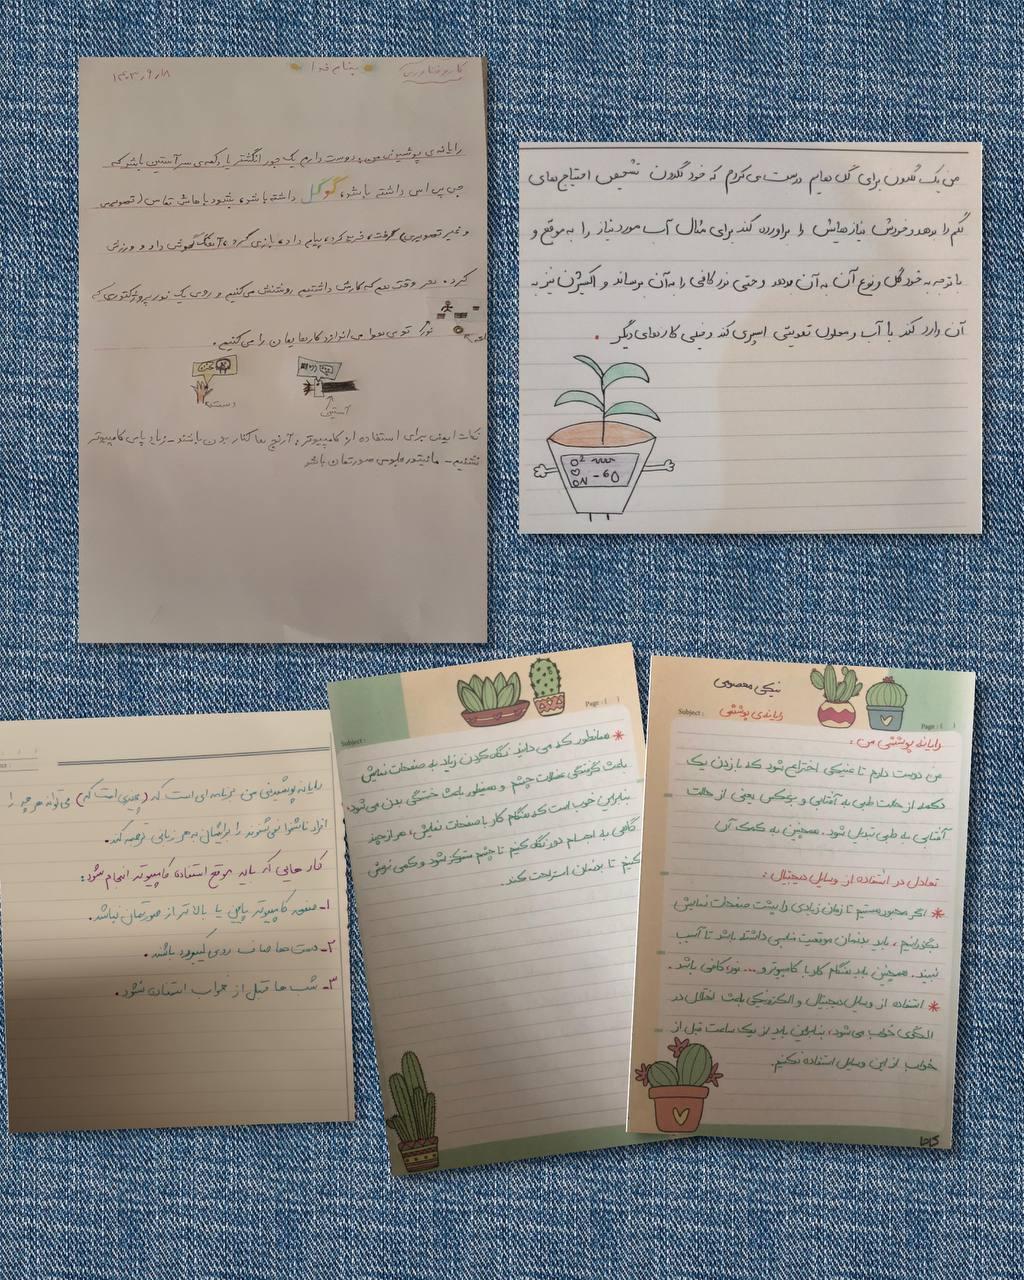 کار و فناوری
بنام خدا
۱۴۰۳/۹/۱۸
رایانه‌ی پوشیدنی من: دوست دارم یک جور انگشتر یا دکمه‌ی سرآستین باشد که
جی پی اس داشته باشد، گوگل داشته باشد، بشود باهاش تماس (تصویری
و غیر تصویری) گرفت، خرید کرد، پیام داد، بازی کرد، آهنگ گوش داد و ورزش
کرد. هر وقت هم که کارش داشتیم روشنش می‌کنیم و روی یک نور پروژکتوری که
نورش توی هوا می‌اندازد کارهایمان را می‌کنیم.
دست
آستین
نکات ایمنی برای استفاده از کامپیوتر: آرنج ها کنار بدن باشند - زیاد پای کامپیوتر
نشینیم - مانیتور جلوی صورتمان باشد
من یک گلدون برای گل هایم درست می‌کردم که خود گلدون تشخیص احتیاج‌های
گلم را بدهد و خودش نیازهایش را براورده کند برای مثال آب مورد نیاز را به موقع و
با توجه به خود گل و نوع آن به آن بدهد و حتی نور کافی را به آن برساند و اکسیژن نیز به
آن وارد کند با آب و محلول تقویتی اسپری کند و خیلی کارهای دیگر.
O²
ON - 60
رایانه پوشیدنی من برنامه ای است که (چیزی است که) می‌تواند هر چه را
افراد ناشنوا می‌شنوند را برایشان به هر زبانی ترجمه کند.
کار هایی که باید موقع استفاده کامپیوتر انجام شود:
۱- صفحه کامپیوتر پایین یا بالاتر از صورتمان نباشد.
۲- دست ها صاف روی کیبورد باشند.
۳- شب ها قبل از خواب استفاده نشود.
Subject:
Page: ( )
* همانطور که می دانید نگاه کردن زیاد به صفحات نمایش
باعث گرفتگی عضلات چشم و همینطور باعث خستگی بدن می‌شود.
بنابراین خوب است که هنگام کار با صفحات نمایش، هر از چند
گاهی به اجسام دور نگاه کنیم تا چشم متمرکز شود و کمی نرمش
کنیم تا بدنمان استراحت کند.
نیکی معصومی
Subject: رایانه‌ی پوششی
Page: ( )
رایانه پوششی من:
من دوست دارم تا عینکی اختراع شود که با زدن یک
دکمه از حالت طبی به آفتابی و برعکس یعنی از حالت
آفتابی به طبی تبدیل شود. همچنین به کمک آن
تعادل در استفاده از وسایل دیجیتال:
* اگر مجبور هستیم تا زمان زیادی را پشت صفحات نمایش
بگذرانیم، باید بدنمان موقعیت مناسبی داشته باشد تا آسیب
نبیند. همچنین باید هنگام کار با کامپیوتر و ... نور، کافی باشد.
* استفاده از وسایل دیجیتال و الکترونیکی باعث اختلال در
الگوی خواب می‌شود، بنابراین باید از یک ساعت قبل از
خواب از این وسایل استفاده نکنیم.